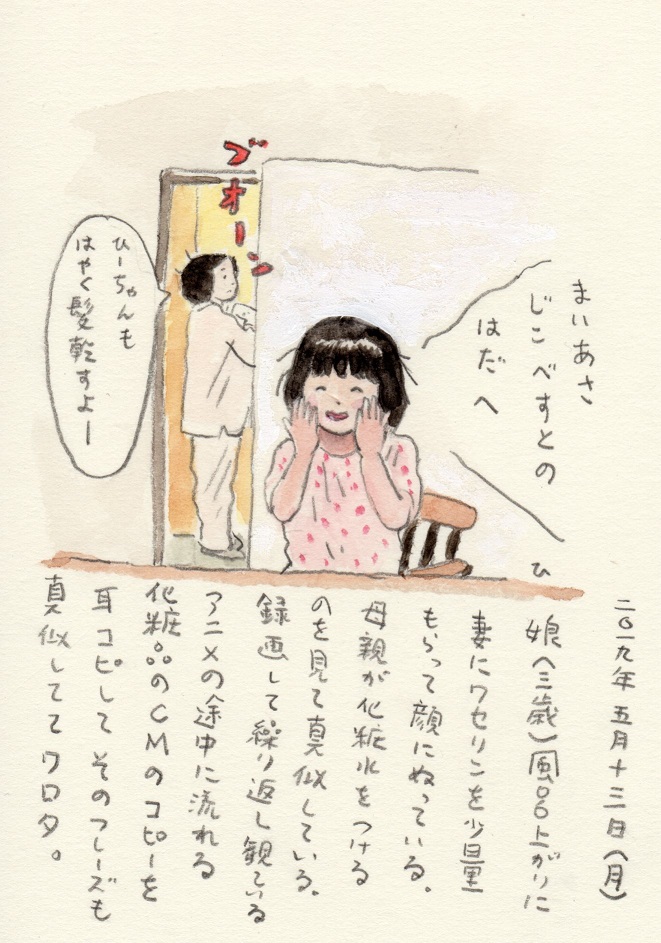 ブオーン
まいあさ
じこ べすとの
はだへ
ひーちゃんも
はやく髪乾すよー
ひ
二〇一九年 五月十三日(月)
娘(三歳)風呂上がりに
妻にワセリンを少量
もらって顔にぬっている。
母親が化粧水をつける
のを見て真似している。
録画して繰り返し観ている
アニメの途中に流れる
化粧品のCMのコピーを
耳コピして そのフレーズも
真似しててワロタ。